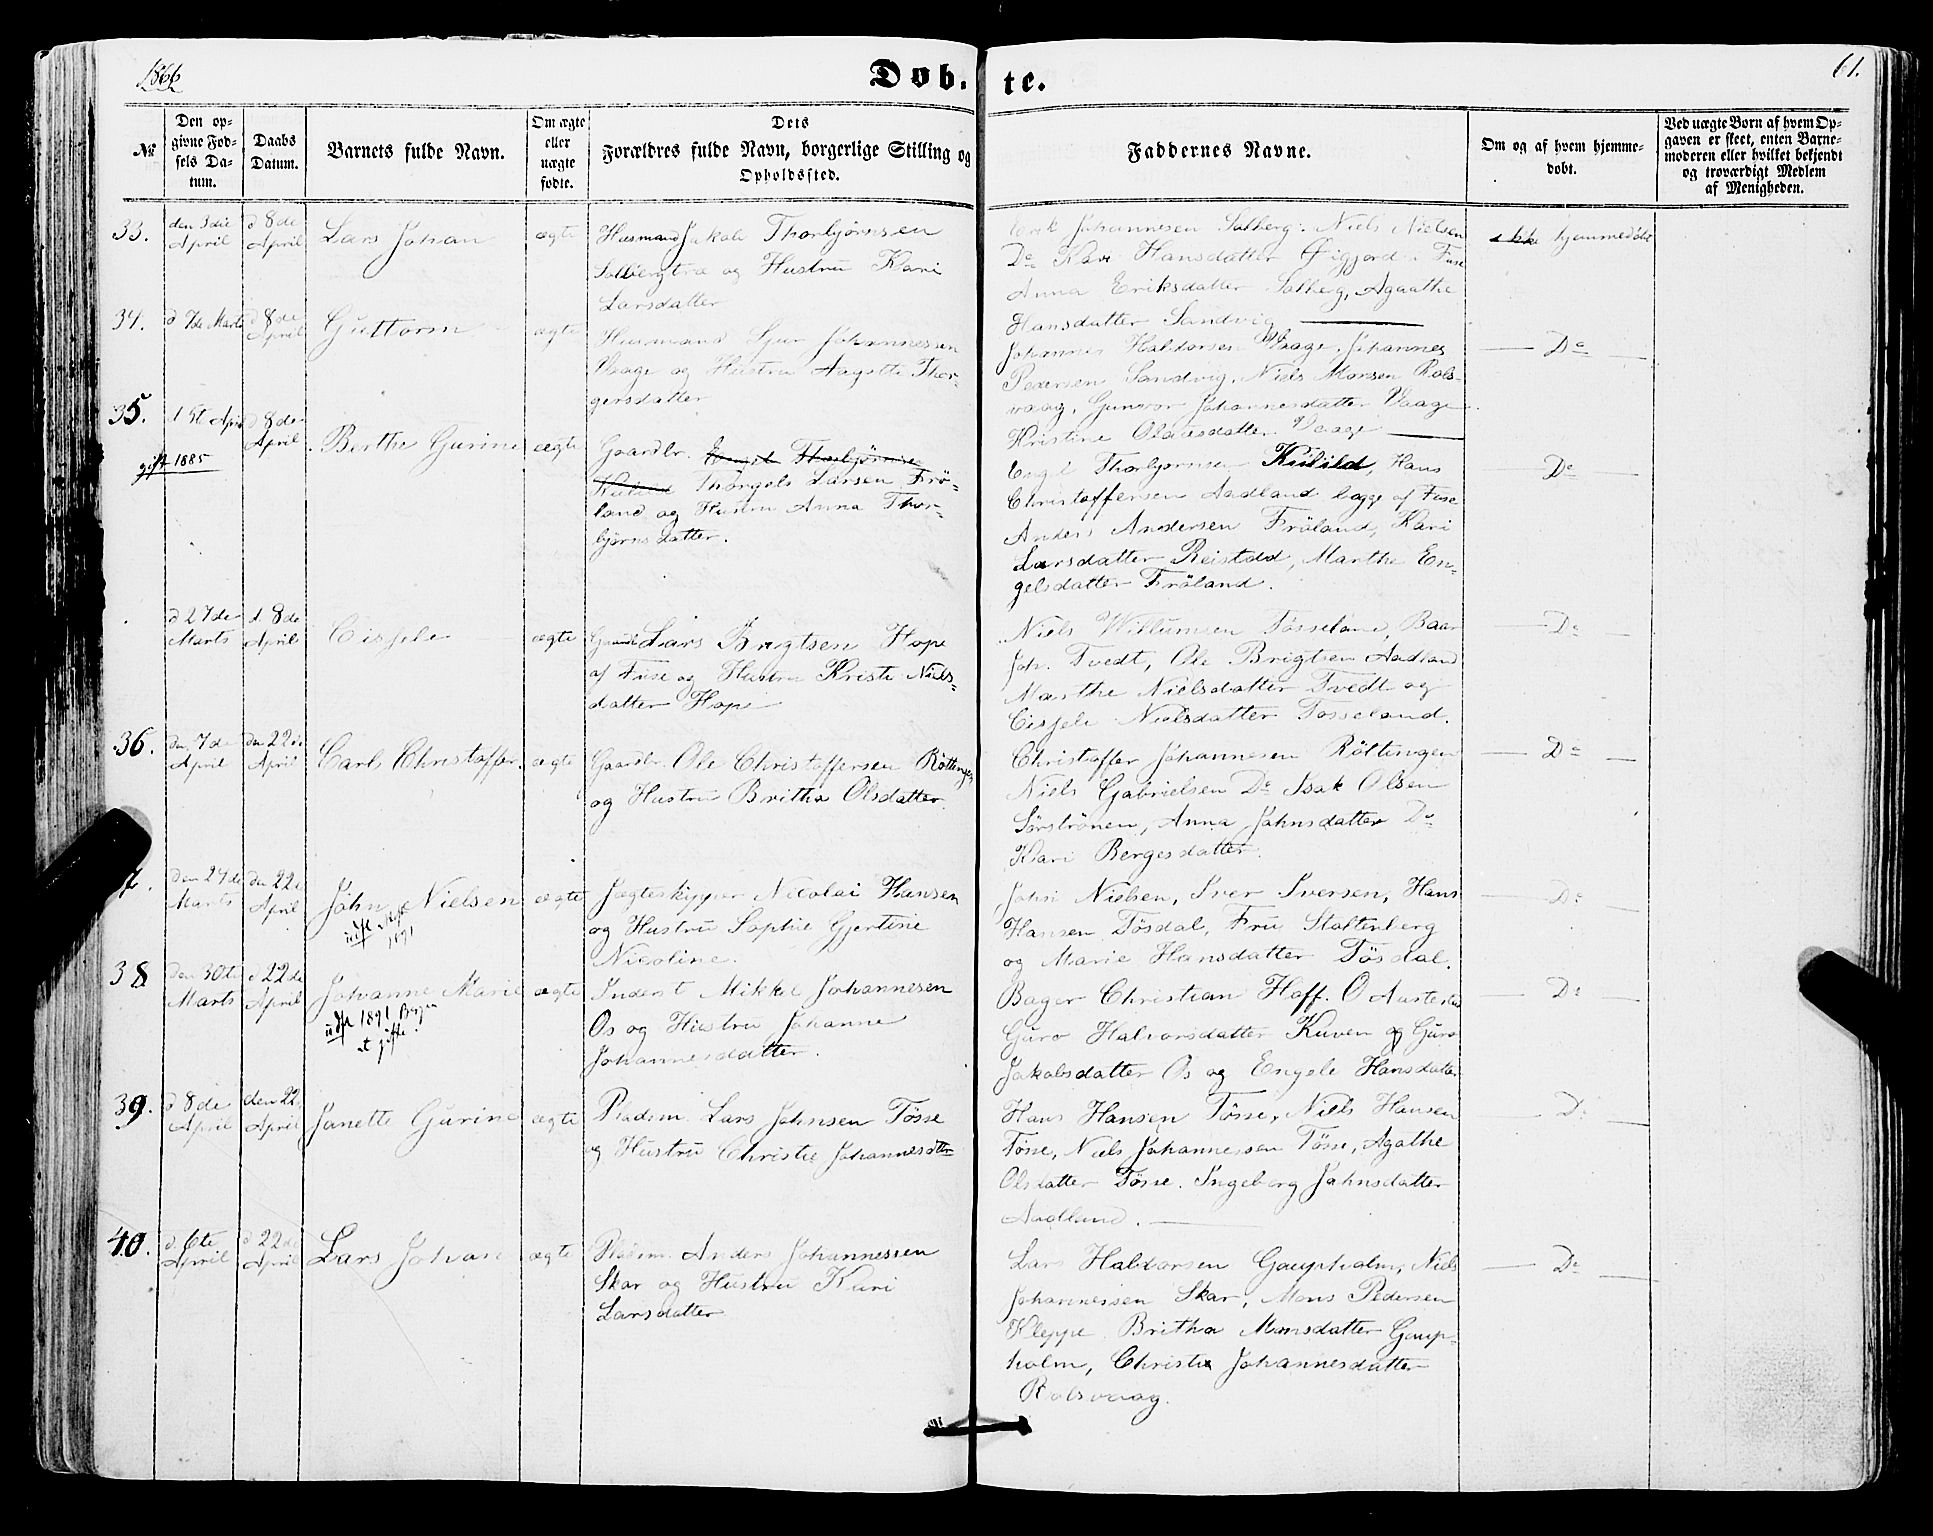 1866
Døb-
te.
61.
№
Den op-
givne Fød-
sels Da-
tum.
Daabs
Datum.
Barnets fulde Navn.
Om ægte
eller
uægte
fødte.
Dets
Forældres fulde Navn, borgerlige Stilling og
Opholdssted.
Faddernes Navne.
Om og af hvem hjemme-
døbt.
Ved uægte Børn af hvem Op-
gaven er skeet, enten Barne-
moderen eller hvilket bekjendt
og troværdigt Medlem
af Menigheden.
33.
den 3die
April
d 8de
April
Lars Johan
ægte
Husmand Jakob Thorbjørnsen
Solbergtræ og Hustru Kari
Larsdatter
Erik Johannesen Solberg. Niels Nielsen
Do Kari Hansdatter Øigjord i Fuse
Anna Eriksdatter Solberg, Agaathe
Hansdatter Sandvig
ikke hjemmedøbt
34.
d 7de Marts
d 8de
April
Guttorm
ægte
Husmand Sjur Johannessen
Vaage og Hustru Aagotte Thor-
gersdatter
Johannes Haldorsen Vaage, Johannes
Pedersen Sandvig, Niels Monsen Rols-
vaag, Gunvor Johannesdatter Vaage
Kristine Olausdatter Vaage
Do
35.
d 5t April
d 8de
April
gift 1885
Berthe Gurine
ægte
Gaardbr. Engel Thorbjørnsen
Kulild Thorgels Larsen Frø-
land og Hustru Anna Thor-
bjørnsdatter.
Engel Thorbjørnsen Kulild, Hans
Christoffersen Aadland begge af Fuse
Anders Andersen Frøland, Kari
Larsdatter Reistad, Marthe En-
gelsdatter Frøland.
Do
d 27de
Marts
d. 8de
April
Cisjele
ægte
Gaardb Lars Brigtsen Hope
af Fuse og Hustru Kriste Niels-
datter Hope
Niels Willumsen Tøsseland, Baar
Joh. Tvedt, Ole Brigtsen Aadland
Marthe Nielsdatter Tvedt og
Cisjele Nielsdatter Tøsseland.
Do
36.
den 7de
April
den 22de
April
Carl Christoffer.
ægte
Gaardbr. Ole Christoffersen Røttingen
og Hustru Britha Olsdatter.
Christoffer Johannesen Røttingen
Niels Gabrielsen Do Isak Olsen
Sørstrønen, Anna Johnsdatter Do
Kari Bergesdatter.
Do
7.
den 27de
Marts
den 22de
April
John Nielsen
1891
ægte
Jægteskipper Nicolai Hansen
og Hustru Sophie Gjertine
Nicoline.
John Nielsen, Iver Iversen, Hans
Hansen Tøsdal, Fru Stoltenberg
og Marie Hansdatter Tøsdal.
Do
38
den 30te
Marts
d 22de
April
Johanne Marie
udfl 1891 Bergen
ægte
Inderst Mikkel Johannesen
Os og Hustru Johanne
Johannesdatter.
Bager Christian Hoff. O
Guro Halvorsdatter Kuven og Guro
Jakobsdatter Os og Engele Hansdatter
Do
39.
d 8de
April
den 22.
April
Janette Gurine
ægte
Pladsm. Lars Johnsen Tøsse
og Hustru Christie Johannesdtr
Hans Hansen Tøsse, Niels Hansen
Tøsse, Niels Johannessen Tøsse, Agathe
Olsdatter Tøsse. Ingeborg Johnsdatter
Aadland.
Do
40.
d. 6te
April
d 22de
April
Lars Johan
ægte
Pladsm. Anders Johannessen
Skar og Hustru Kari
Larsdatter
Lars Haldorsen Gaupholm, Niels
Johannessen Skar, Mons Pedersen
Kleppe Britha Monsdatter Gaup-
holm, Christie Johannesdatter
Rolsvaag.
Do